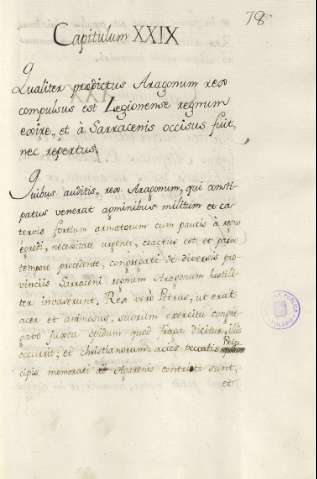 78
Capitulum XXIX
Qualiter prædictus Aragonum rex
compulsus est Legionense regnum
exire, et à Sarracenis occisus fuit,
nec repertus.
Quibus auditis, rex Aragonum, qui consti-
patus venerat agminibus militum et ca-
tervis fortium armatorum cum paucis à regno
egredi, necessitate urgente, coactus est, et prin
tempore procedente, congregati de diversis pro-
vinciis Sarraceni regnum Aragonum hostili-
ter invaserunt, Rex verò Petrus, ut erat
acer et animosus, suorum exercitu congre-
gato juxta opidum quod Fraga dicitur, illis
occurrit; et christianorum acies peccatis
Prin
cipis memorati et Aprensis contritæ sunt,
et